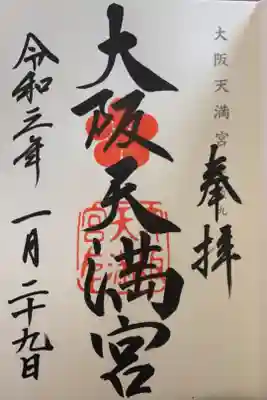 大阪天満宮
奉拝
大阪天満宮
令和三年 一月二十九日